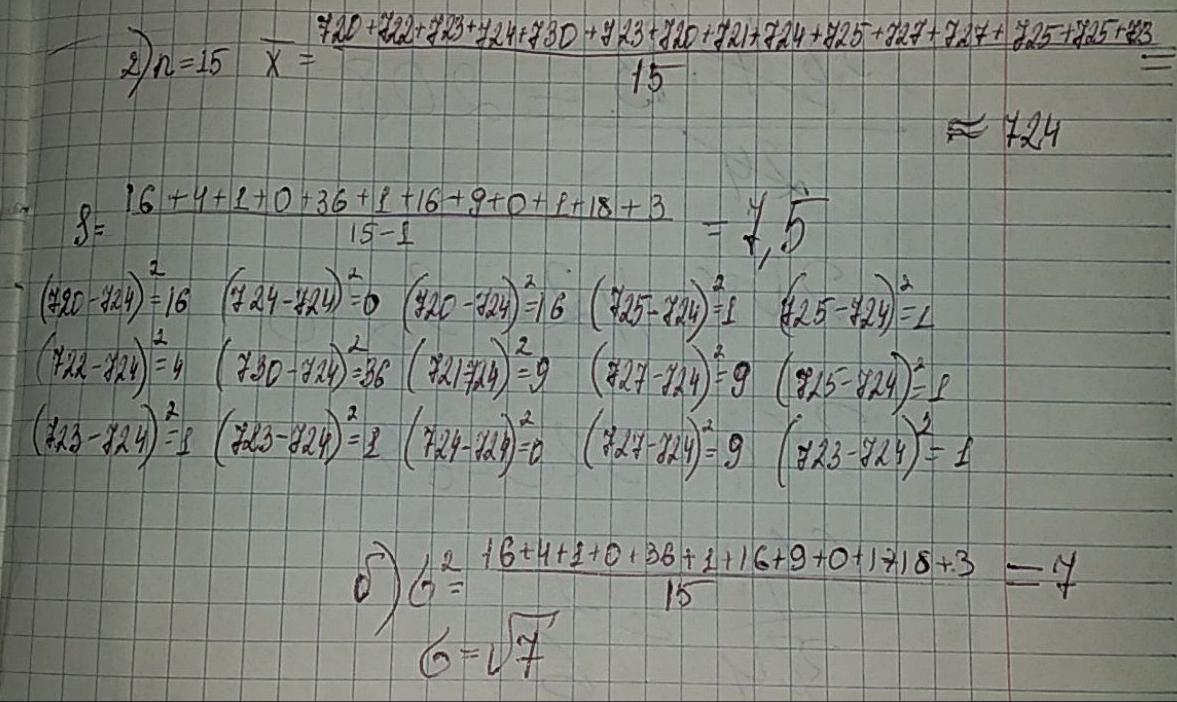 2) n=15 x̄ = 720+722+723+724+730+723+720+721+724+725+727+727+725+725+723
15 =
≈ 724
S= 16+4+1+0+36+1+16+9+0+1+18+3
15-1 = 7,5
(720-724)²=16 (724-724)²=0 (720-724)²=16 (725-724)²=1 (725-724)²=1
(722-724)²=4 (730-724)²=36 (721724)²=9 (727-724)²=9 (725-724)²=1
(723-724)²=1 (723-724)²=1 (724-724)²=0 (727-724)²=9 (723-724)²=1
б) б²= 16+4+1+0+36+1+16+9+0+1+18+3
15 = 7
б=√7